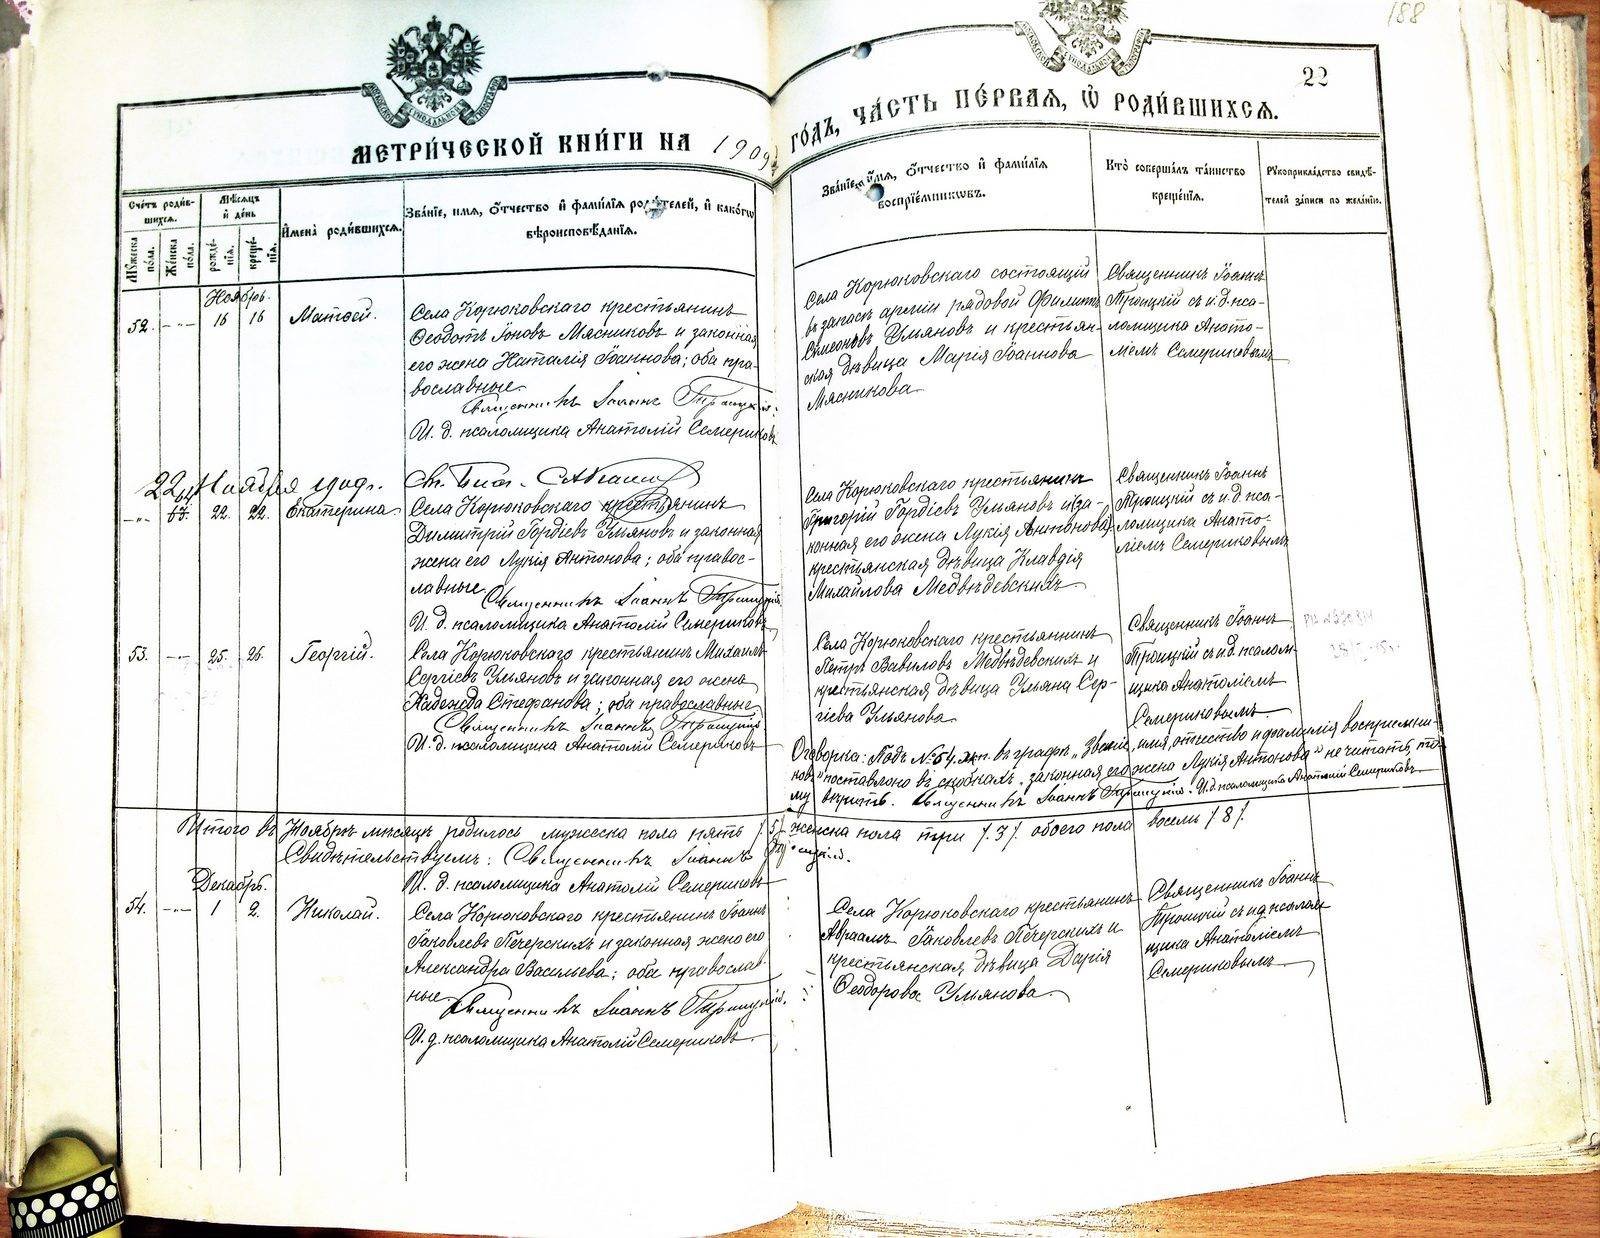 188
22
МЕТРИ́ЧЕСКОЙ КНИ́ГИ НА 1909 ГО́ДЪ, ЧА́СТЬ ПЕ́РВАЯ, Ѽ РОДИ́ВШИХСЯ.
Сче́тъ роди́в-
шихся.
Мꙋ́жеска
по́ла.
Же́нска
по́ла.
Мѣ́сяцъ
и҆ де́нь
рожде́-
нїя.
креще́-
нїя.
И҆мена̀ роди́вшихся.
Зва́нїе, имя, ѻ҆́тчество и҆ фами́лїя роди́телей, и҆ како́гѡ
вѣроисповѣ́данїя.
Зва́нїе, и҆́мя, ѻ҆́тчество и҆ фами́лїя
воспрїе́мникѡвъ.
Кто̀ соверша́лъ та́инство
креще́нїя.
Рꙋкоприкла́дство свидѣ́-
телей за́писи по жела́нїю.
Ноябрь.
52. -"- 16 16 Матѳей.
Села Корюковскаго крестьянинъ
Ѳеодотъ Іоновъ Мясниковъ и законная
его жена Наталія Іоаннова; оба пра-
вославные.
Священникъ Іоаннъ Троицкій.
И. д. псаломщика Анатолій Семериковъ
Села Корюковскаго состоящій
въ запасѣ арміи рядовой Филиппъ
Симеоновъ Ульяновъ и крестьян-
ская дѣвица Марія Іоаннова
Мясникова
Священникъ Іоаннъ
Троицкій съ и. д. пса-
ломщика Анато-
ліемъ Семериковымъ
22 Ноября 1909 г.
-"- 22. 22. Екатерина.
Села Корюковскаго крестьянинъ
Димитрій Гордіевъ Ульяновъ и законная
жена его Лукія Антонова; оба правос-
лавные.
Священникъ Іоаннъ Троицкій
И. д. псаломщика Анатолій Семериковъ
Села Корюковскаго крестьянинъ
Григорій Гордіевъ Ульяновъ и (за-
конная его жена Лукія Антонова)
крестьянская дѣвица Клавдія
Михайлова Медвѣдевскихъ
Священникъ Іоаннъ
Троицкій съ и. д. пса-
ломщика Анато-
ліемъ Семериковымъ
53. -"- 25. 26. Георгій.
Села Корюковского крестьянинъ Михаилъ
Сергіевъ Ульяновъ и законная его жена
Надежда Стефанова; оба православные
Священникъ Іоаннъ Троицкій
И. д. псаломщика Анатолій Семериковъ
Села Корюковскаго крестьянинъ
Петръ Вавиловъ Медвѣдевскихъ и
крестьянская дѣвица Ульяна Сер-
гіева Ульянова
Священникъ Іоаннъ
Троицкій съ и. д. псалом-
щика Анатоліемъ
Семериковымъ.
Оговорка: Подъ № 54 жп. въ графѣ „Званіе, имя, отчество и фамилія воспріемни-
ковъ" поставлено въ скобкахъ „законная его жена Лукія Антонова" не читать, то-
му вѣрить. Священникъ Іоаннъ Троицкій. И. д. псаломщика Анатолій Семериковъ
Итого въ Ноябрѣ мѣсяцѣ родилось мужеска пола пять /5/ женска пола три /3/ обоего пола восемь /8/.
Свидѣтельствуемъ: Священникъ Іоаннъ Троицкій.
И. д. псаломщика Анатолій Семериковъ
Декабрь.
54. -"- 1 2. Николай.
Села Корюковскаго крестьянинъ Іоаннъ
Іаковлевъ Печерскихъ и законная жена его
Александра Васильева; оба православ-
ные.
Священникъ Іоаннъ Троицкій.
И. д. псаломщика Анатолій Семериковъ.
Села Корюковскаго крестьянинъ
Авраамъ Іаковлевъ Печерскихъ и
крестьянская дѣвица Дарія
Ѳеодорова Ульянова.
Священникъ Іоаннъ
Троицкій съ и д псалом
щика Анатоліемъ
Семериковымъ